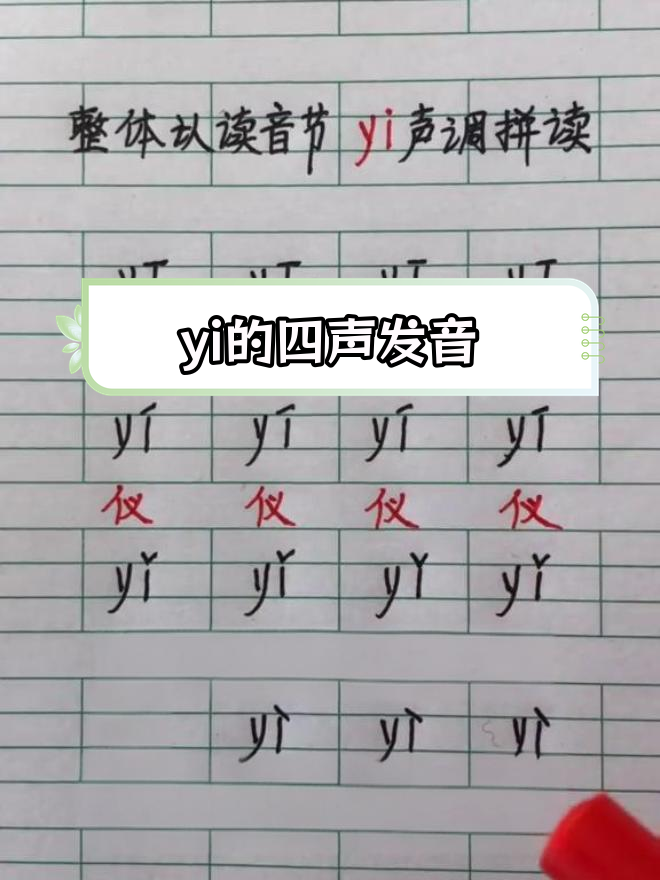 整体认读音节 yi声调拼读
yī yī yī yī
yi的四声发音
yí yí yí yí
仪 仪 仪 仪
yǐ yǐ yǐ yǐ
yì yì yì